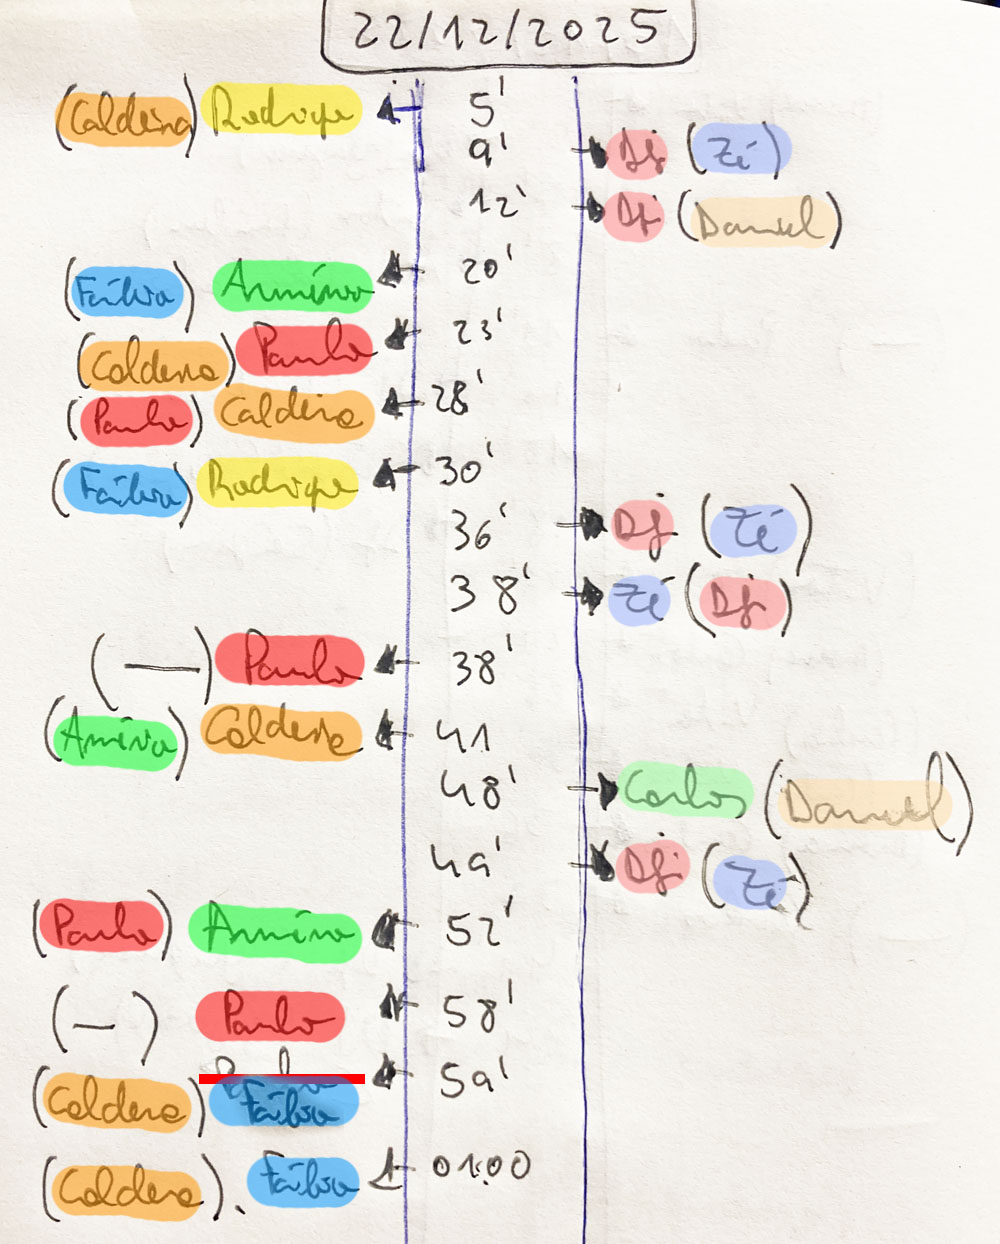 22/12/2025
(Caldeira) Rodrigo 5'
9' Dj (Zé)
12' Dj (Daniel)
(Faílsca) Armínio 20'
(Caldeira) Paulo 23'
(Paulo) Caldeira 28'
30' Rodrigo
36' Dj (Zé)
38' Zé (Dj)
(—) Paulo 38'
(Armínio) Caldeira 41
48' Carlos (Daniel)
49' Dj (Zé)
(Paulo) Armínio 52'
(—) Paulo 58'
(Caldeira) 59'
(Caldeira). 01:00